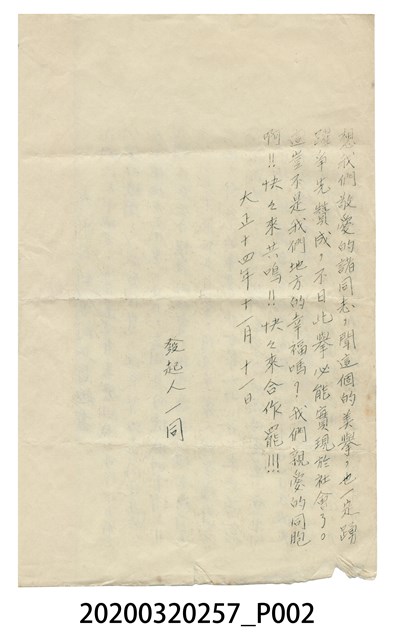 想我們敬愛的諸同志，聞這個的美舉，也一定踴
躍爭先贊成，不日此舉必能實現於社會了。
這豈不是我們地方的幸福嗎？我們親愛的同胞
啊!!快々來共鳴!!快々來合作罷!!!
大正十四年十一月十一日
發起人一同
20200320257_P002